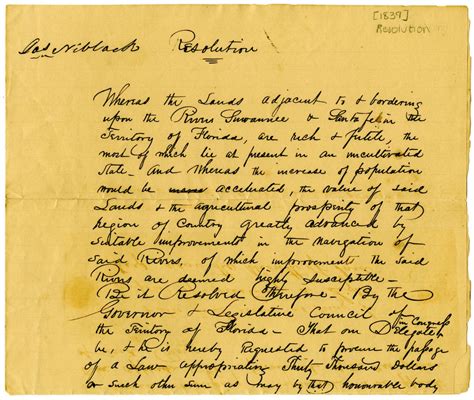 [1839]
Resolution
Jas Niblack Resolution
Whereas the Lands adjacent to & bordering
upon the Rivers Suwannee & Santafe in the
Territory of Florida, are rich & fertile, the
most of which lie at present in an uncultivated
State - And Whereas the increase of population
would be accelerated, the value of said
Lands & the agricultural prosperity of that
Region of Country greatly advanced by
suitable improvements in the navigation of
said Rivers, of which improvements the said
Rivers are deemed highly susceptible -
Be it Resolved Therefore - By the
Governor & Legislative Council of
the Territory of Florida - That our Delegate
in Congress
be, & he is hereby requested to procure the passage
of a Law appropriating Thirty Thousand Dollars
or such other sum as may by that honourable body